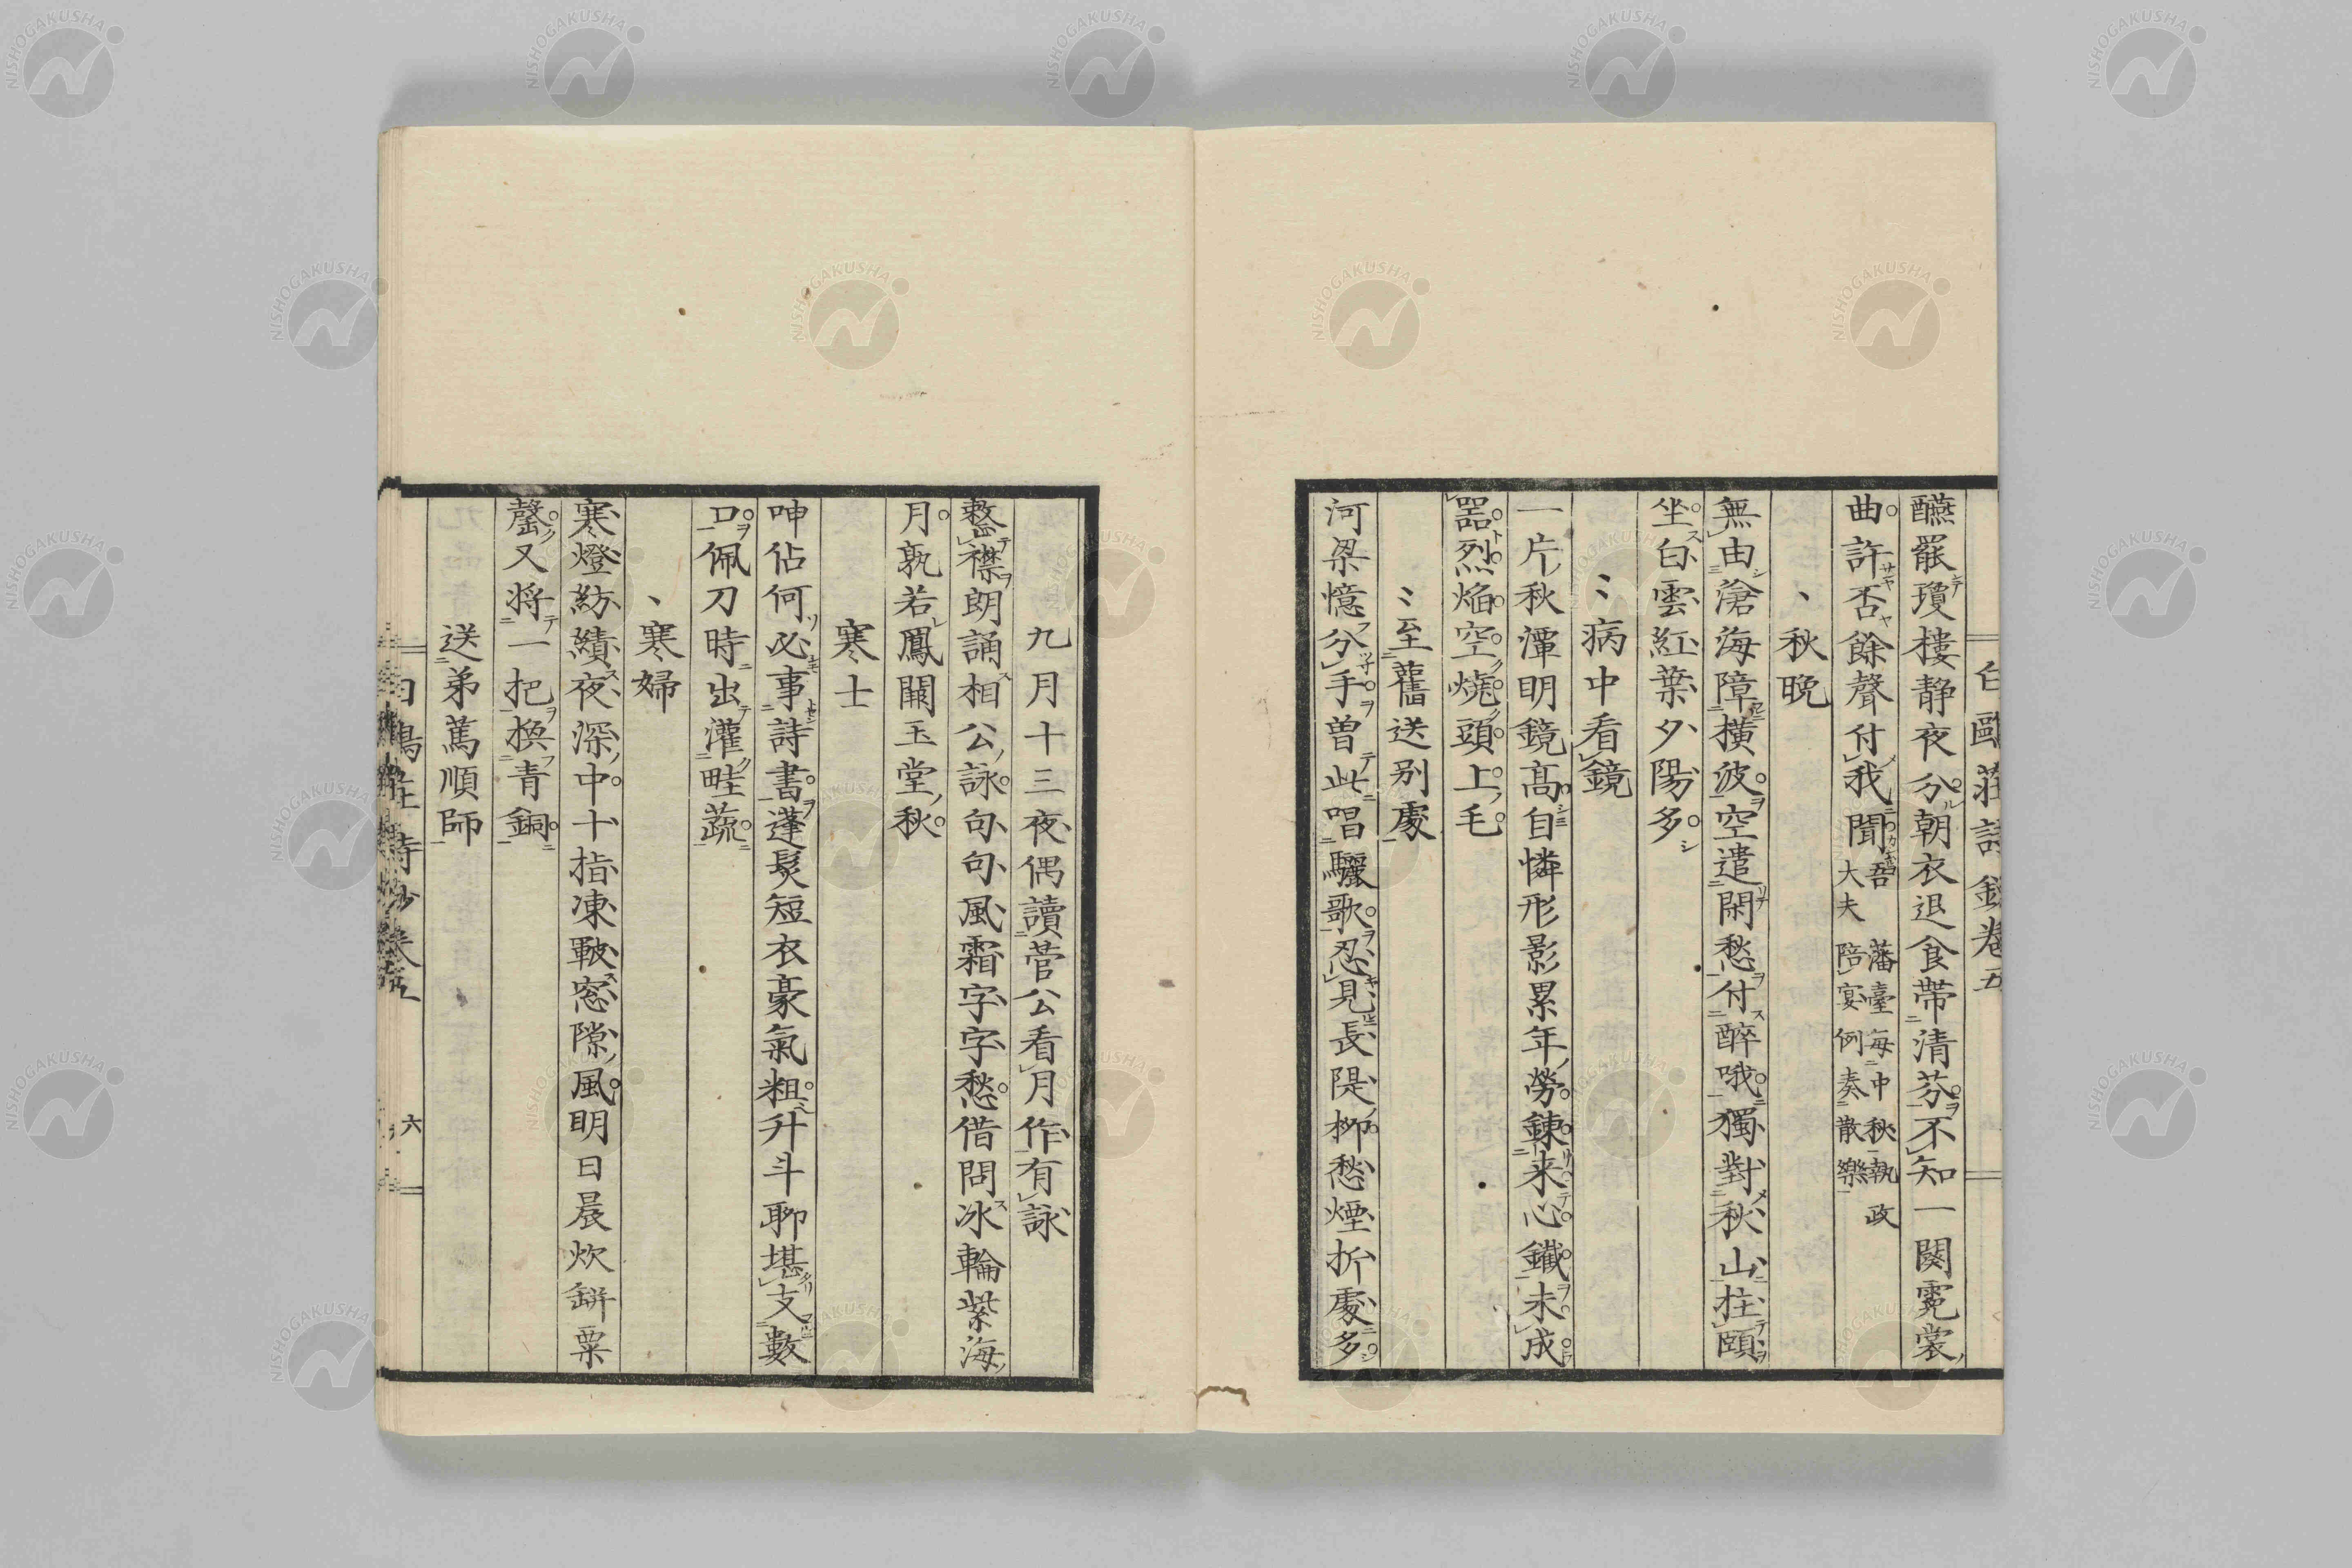 白鷗莊詩鈔卷五
醼罷瓊樓静夜分朝衣退食帶清芬不知一闋霓裳
曲許否餘聲付我聞吾藩臺每中秋執政大夫陪宴例奏散樂
秋晩
無由滄海障橫波空遣閑愁付醉哦獨對秋山拄頤
坐白雲紅葉夕陽多
病中看鏡
一片秋潭明鏡高自憐形影累年勞鍊来心鐵未成
器烈焔空燒頭上毛
至舊送别處
河梁憶分手曽此唱驪歌忍見長隄柳愁煙折處多
九月十三夜偶讀菅公看月作有詠
整襟朗誦相公詠句句風霜字字愁借問冰輪紫海
月孰若鳳闕玉堂秋
寒士
呻佔何必事詩書蓬髮短衣豪氣粗升斗聊堪支數
口佩刀時出灌畦蔬
寒婦
寒燈紡績夜深中十指凍皸窓隙風明日晨炊缾粟
罄又将一把換青銅
送弟萬順師
六
NISHOGAKUSHA